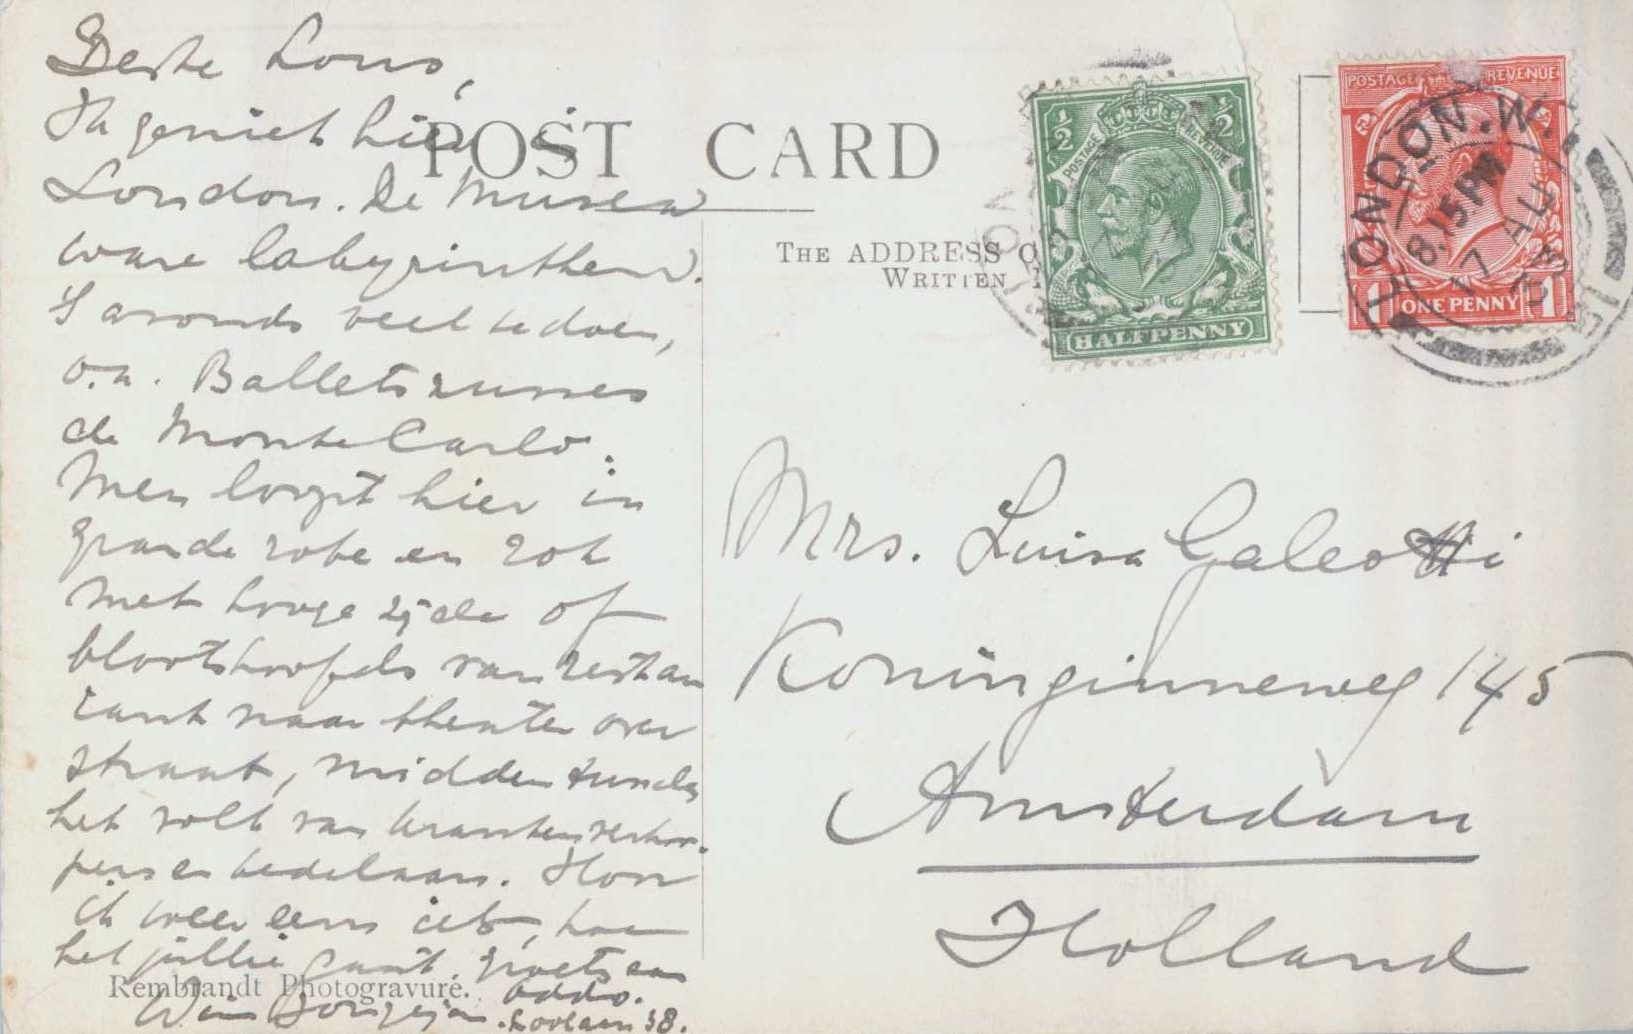 Beste Lous,
Ik geniet hier in
London. De Musea
ware labyrinthen.
's avonds veel te doen,
o.a. Ballets russes
de Monte Carlo.
Men loopt hier in
grande robe en rok
met hooge zijde of
blootshoofds van restau
rant naar theater over
straat, midden tusschen
het volk van krantenverkoo-
pers en bedelaars. Hoor
ik weer eens iets, hoe
het jullie gaat. Groets aan
Addo.
Wim
38.
POST CARD
THE ADDRESS
WRITTEN
½ ½
POSTAGE REVENUE
HALFPENNY
POSTAGE REVENUE
1 ONE PENNY 1
LONDON. W.1
8.15 PM
Mrs. Luisa Galeotti
Koninginneweg 145
Amsterdam
Holland
Rembrandt Photogravure.